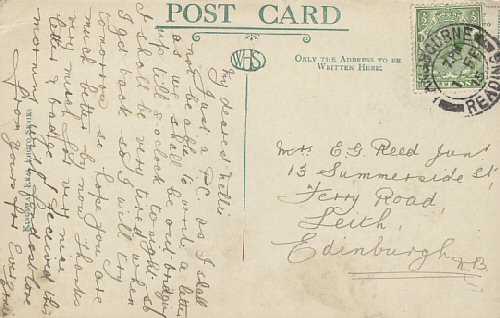 POST CARD
WHS
ONLY THE ADDRESS TO BE
WRITTEN HERE.
PANGBOURNE
READING
My dearest Nellie
Just a P.C. as I shall
not be able to write a letter
as we shall be out bridging
up till 8 o'clock tonight so
I shall be very tired when
I get back so I will try
tomorrow so hope you are
much better by now Thanks
very much for very nice
letter & badge I received this
morning
from yours for Ever
KINGSWAY REAL PHOTO SERIES
Mrs E G Reed Junr
13 Summerside St
Ferry Road
Leith
Edinburgh
N.B.